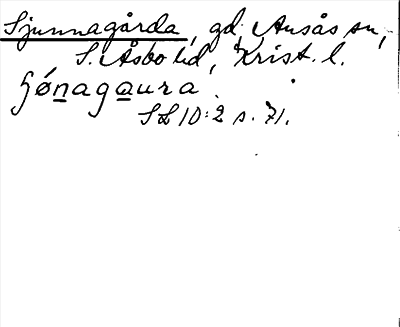 Sjunnagårda, gd, Ausås sn,
S. Åsbo hd, Krist. l.
ʃónagaura
SL 10:2 s. 71.